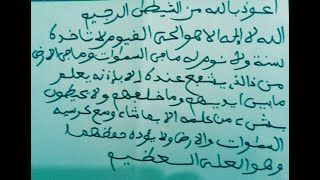 اعوذ بالله من الشيطن الرجيم
الله لا اله الا هو الحي القيوم لا تاخذه
سنة ولا نوم له ما في السموات وما في الارض
من ذالذي يشفع عنده الا باذنه يعلم
ما بين ايديهم وما خلفهم ولا يحيطون
بشيء من علمه الا بما شاء وسع كرسيه
السموات والارض ولا يوده حفظهما
وهو العلي العظيم